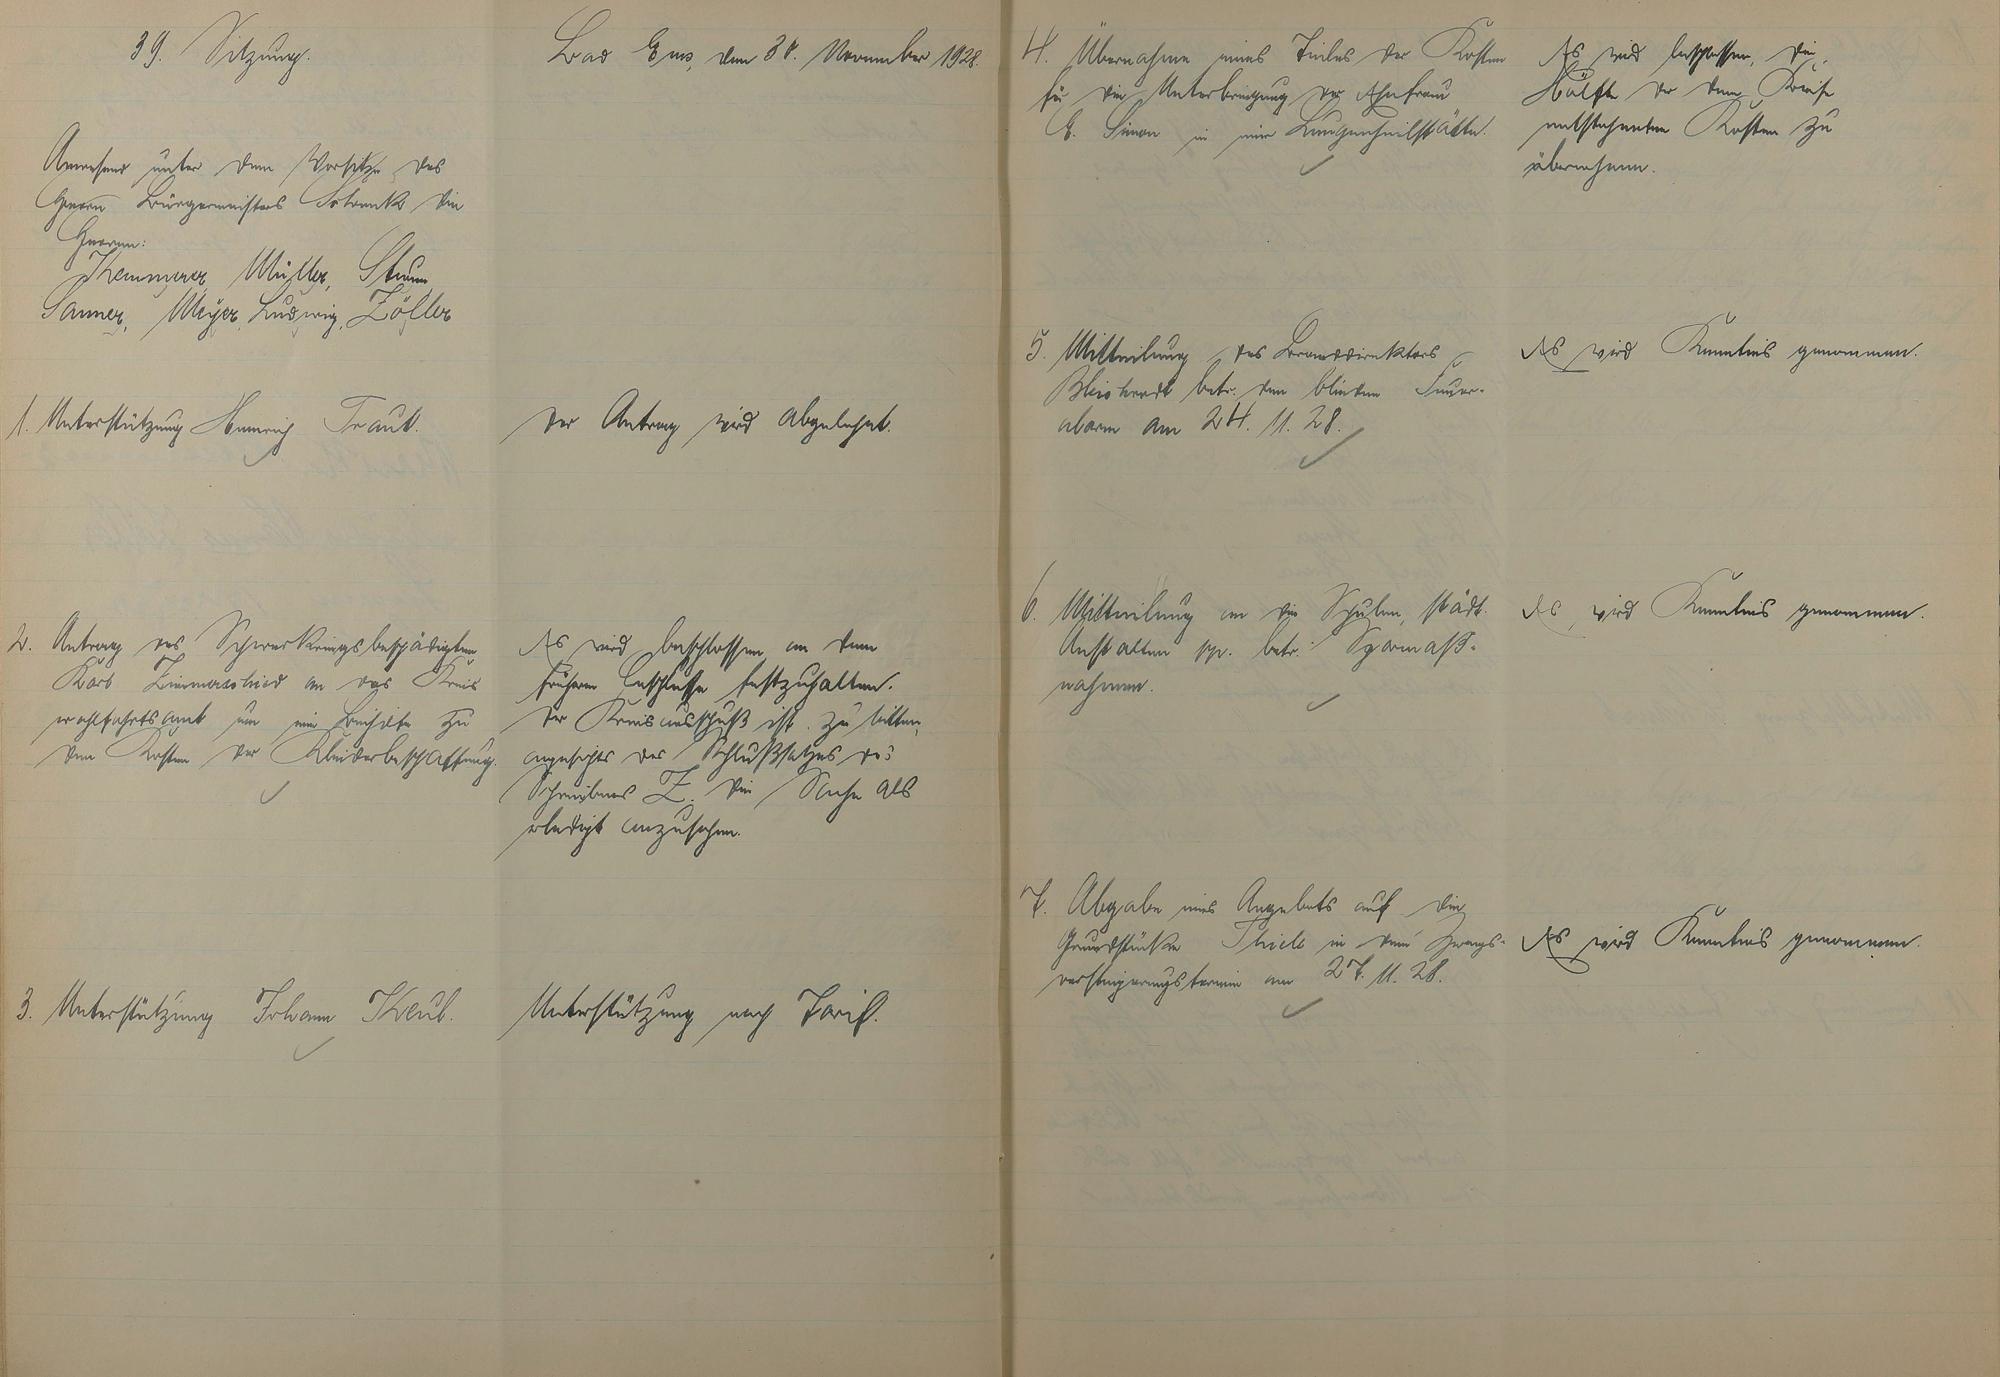 39. Sitzung.
Bad Ems, den 30. November 1928.
Anwesend unter dem Vorsitze des
Herrn Bürgermeisters Schrank die
Herren:
Kemmerer, Müller, Sturm
Sauner, Meyer, Ludwig, Zöller
1. Unterstützung Heinrich Traut.
Der Antrag wird abgelehnt.
2. Antrag des Schwerkriegsbeschädigten
Karb Zimmerschied an das Kreis
wohlfahrtsamt um eine Beihilfe zu
den Kosten der Kleiderbeschaffung.
Es wird beschlossen an dem
früheren Beschlusse festzuhalten.
Der Kreisausschuß ist zu bitten,
angesichts des Schlußsatzes des
Schreibens Z. die Sache als
erledigt anzusehen.
3. Unterstützung Johann Keul.
Unterstützung nach Tarif.
4. Übernahme eines Teiles der Kosten
für die Unterbringung der Ehefrau
E. Simon in einer Lungenheilstätte.
Es wird beschlossen, die
Hälfte der dem Kreise
entstehenden Kosten zu
übernehmen.
5. Mitteilung des Branddirektors
betr. den blinden Feuer-
alarm am 24. 11. 28.
Es wird Kenntnis genommen.
6. Mitteilung an die Schulen, städt.
Anstalten pp. betr. Sparmaß-
nahmen.
Es wird Kenntnis genommen.
7. Abgabe eines Angebots auf die
Grundstücke Thiele in dem Zwangs-
versteigerungstermin am 27. 11. 28.
Es wird Kenntnis genommen.